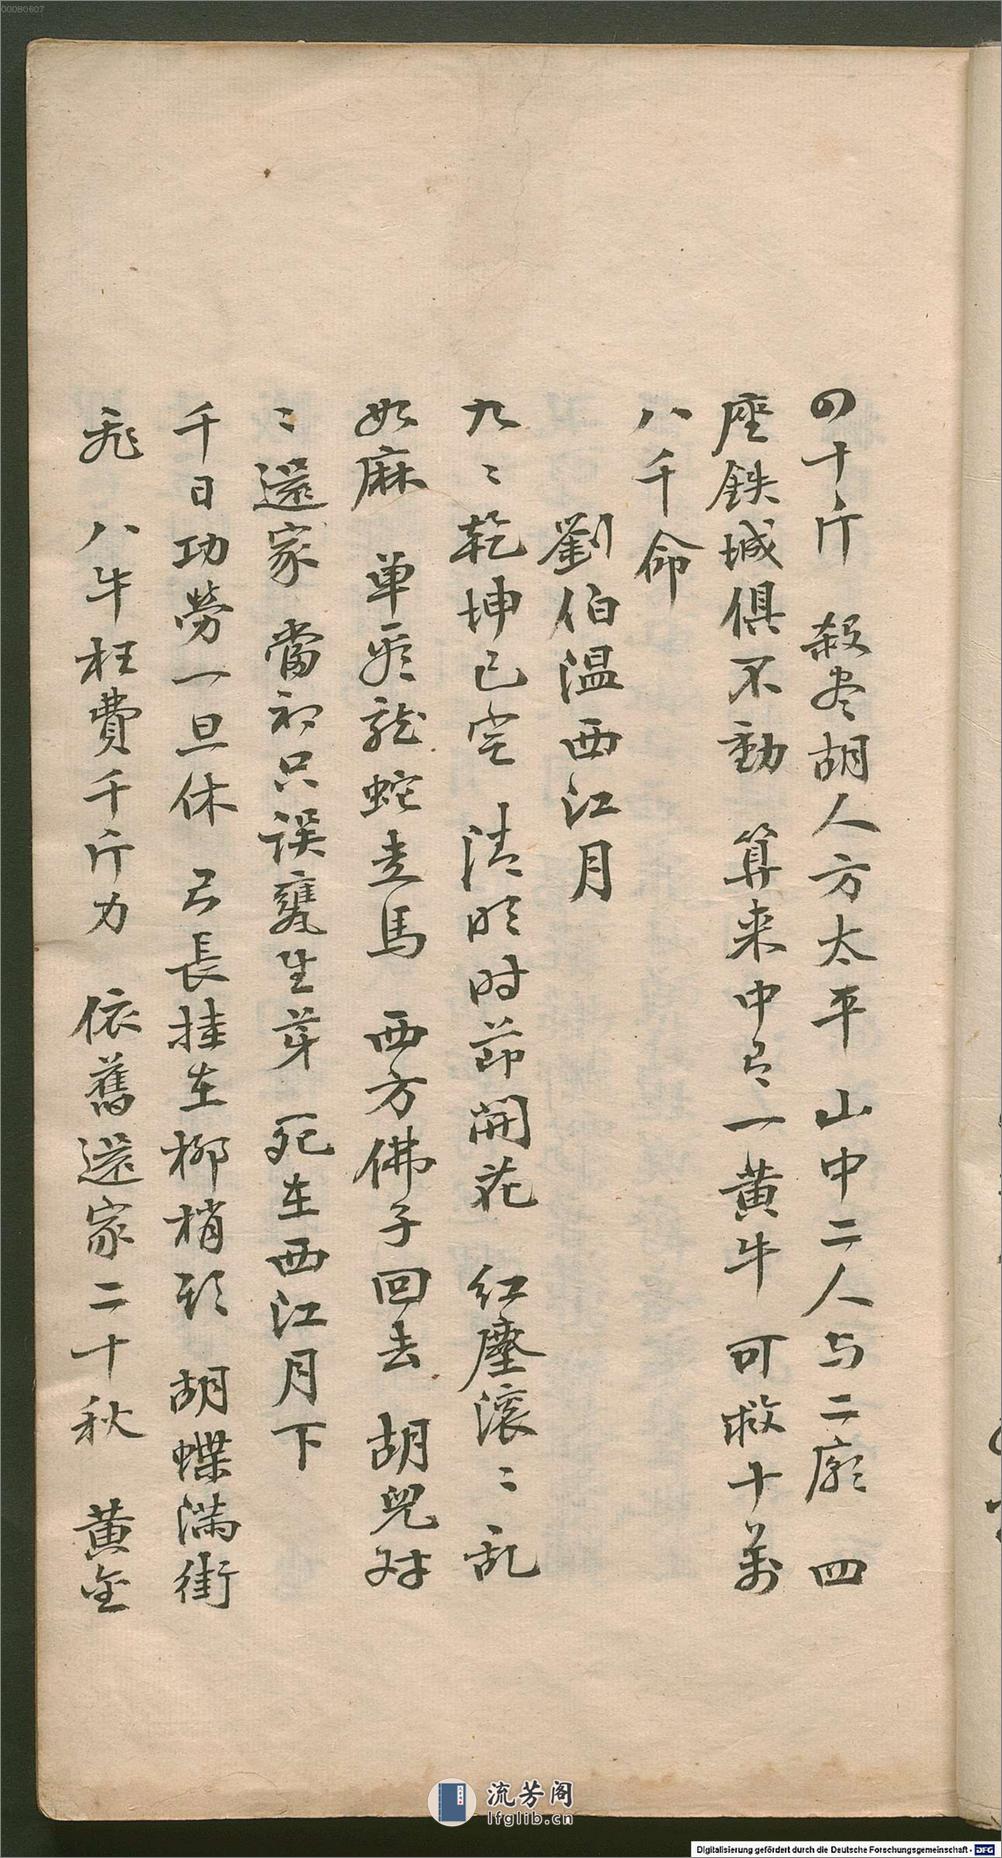 四十斤 殺尽胡人方太平 山中二人与二廟 四
座鉄城俱不動 算来中〻一黄牛 可救十萬
八千命
劉伯温西江月
九〻乾坤已定 清明时節開花 红塵滚〻乱
如麻 单 龍蛇走馬 西方佛子回去 胡兒对
〻還家 當初只误甕生芽 死在西江月下
千日功勞一旦休 弓長挂在柳梢頭 胡蝶滿街
飛 八牛枉費千斤力 依舊還家二十秋 黄金
00080607
流芳阁
lfglib.cn
Digitalisierung gefördert durch die Deutsche Forschungsgemeinschaft - DFG